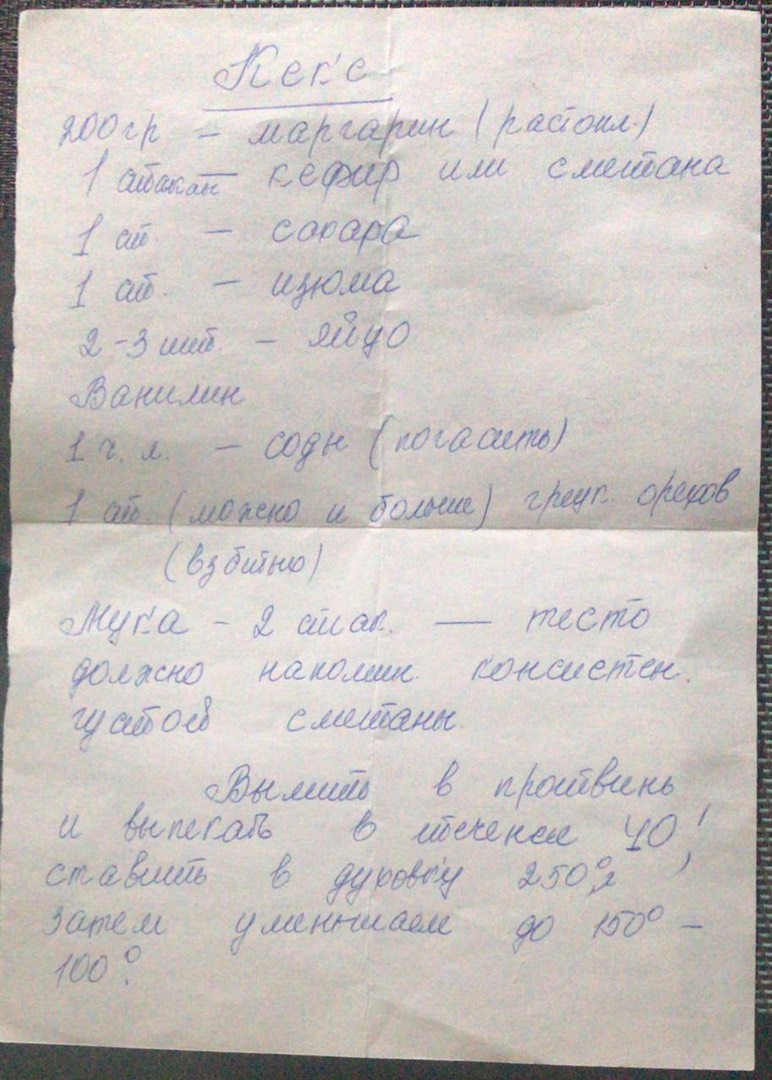 Кекс
200 гр – маргарин (растопл.)
1 стакан – кефир или сметана
1 ст. – сахара
1 ст. – изюма
2-3 шт. – яйцо
Ванилин
1 ч. л. – соды (погасить)
1 ст. (можно и больше) грецк. орехов
(взбитно)
Мука – 2 стак. — тесто
должно напомин. консистен.
густой сметаны.
Вылить в противень
и выпекать в течение 40',
ставить в духовку 250°,
затем уменьшаем до 150° –
100°.